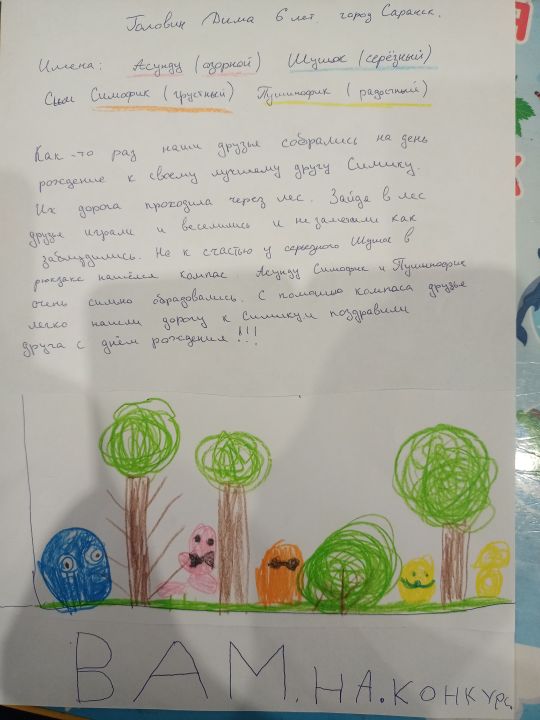 Головин Дима 6 лет. город Саранск.
Имена: Асунду (озорной) Шушок (серёзный)
Симофик (грустный) Пушинофик (радостный)
Как-то раз наши друзья собрались на день
рождение к своему лучшему другу Симику.
Их дорога проходила через лес. Зайдя в лес
друзья играли и веселились и не заметили как
заблудились. Но к счастью у серьезного Шушок в
рюкзаке нашёлся компас. Асунду Симофик и Пушинофик
очень сильно обрадовались. С помошью компаса друзья
легко нашли дорогу к Симику и поздравили
друга с днём рождения!!!
ВАМ. НА. КОНКУРС.